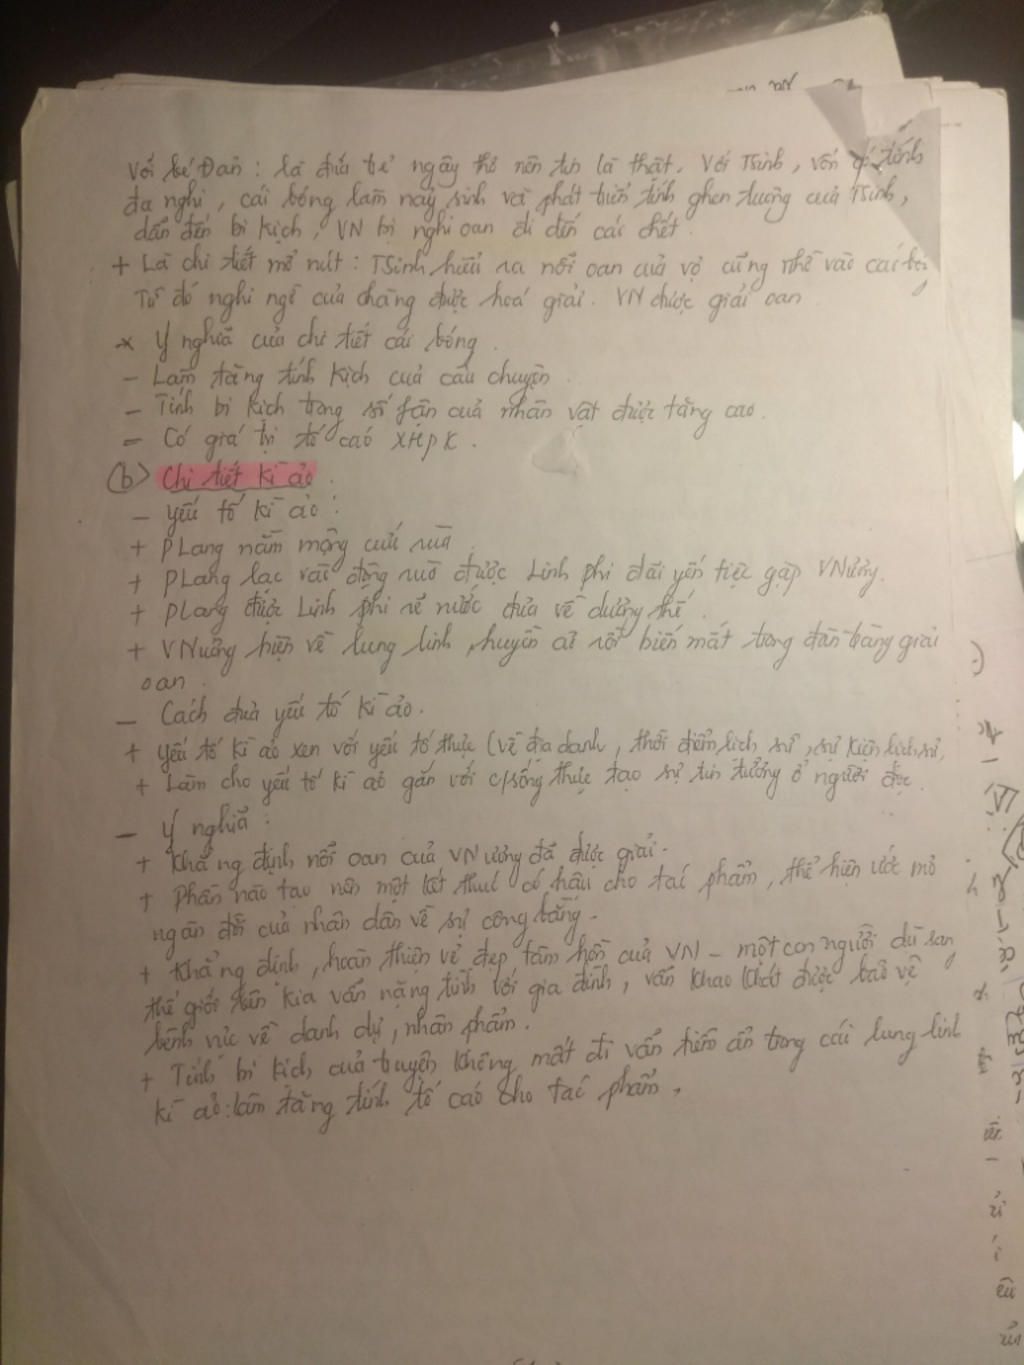 Với bé Đan : là đứa trẻ ngây thơ nên tin là thật. Với TSinh, vốn có tính
đa nghi, cái bóng làm nảy sinh và phát triển tính ghen tuông của TSinh,
dẫn đến bi kịch, VN bị nghi oan đi đến cái chết.
+ Là chi tiết mở nút : TSinh hiểu ra nỗi oan của vợ cũng nhờ vào cái bóng
Từ đó nghi ngờ của chàng được hoá giải. VN được giải oan
* Ý nghĩa của chi tiết cái bóng.
- Làm tăng tính kịch của câu chuyện.
- Tính bi kịch trong số fận của nhân vật được tăng cao.
- Có giá trị tố cáo XHPK.
b) Chi tiết kì ảo.
- Yếu tố kì ảo :
+ PLang nằm mộng cứu rùa.
+ PLang lạc vào động rùa được Linh phi đãi yến tiệc gặp VNương.
+ PLang được Linh phi rẽ nước đưa về dương thế.
+ VNương hiện về lung linh, huyền ảo rồi biến mất trong đàn tràng giải
oan.
- Cách đưa yếu tố kì ảo.
+ Yếu tố kì ảo xen với yếu tố thực (về địa danh, thời điểm lịch sử, sự kiện lịch sử,
+ Làm cho yếu tố kì ảo gần với c/sống thực, tạo sự tin tưởng ở người đọc.
- Ý nghĩa :
+ Khẳng định nỗi oan của VNương đã được giải.
+ Phần nào tạo nên một kết thúc có hậu cho tác phẩm, thể hiện ước mơ
ngàn đời của nhân dân về sự công bằng.
+ Khẳng định, hoàn thiện vẻ đẹp tâm hồn của VN - một con người dù sang
thế giới bên kia vẫn nặng tình với gia đình, vẫn khao khát được bảo vệ
bênh vực về danh dự, nhân phẩm.
+ Tính bi kịch của truyện không mất đi vẫn tiềm ẩn trong cái lung linh
kì ảo : làm tăng tính tố cáo cho tác phẩm.